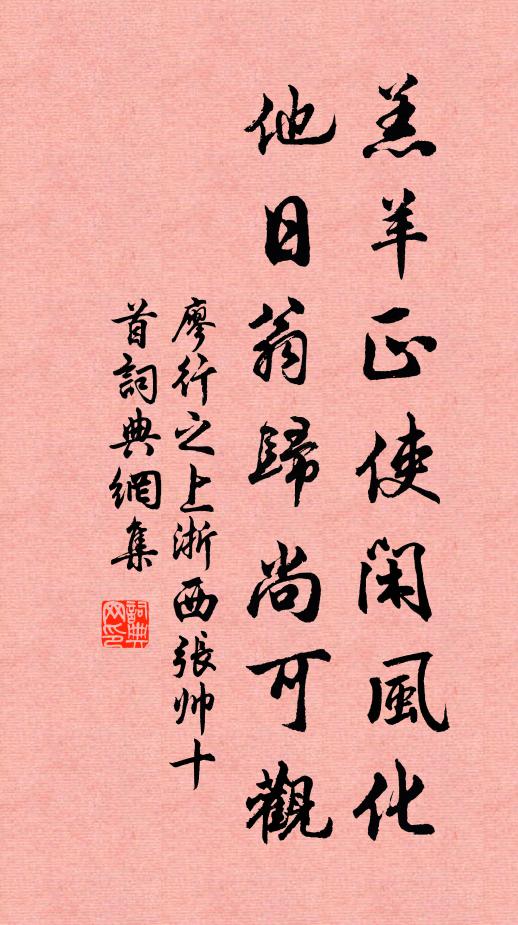 羔羊正使閑風化
他日翁歸尚可觀
廖行之上浙西張帅十
首詞典網集
詞典网印